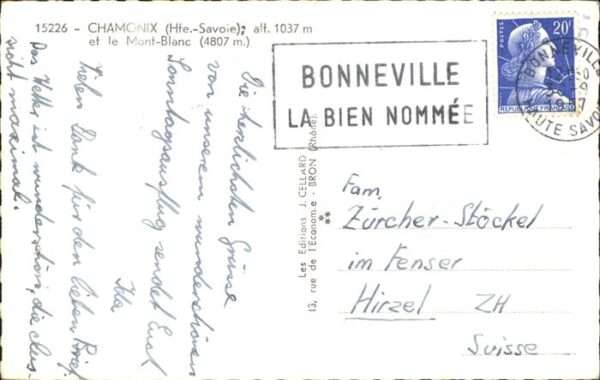 15226 - CHAMONIX (Hte.-Savoie); alt. 1037 m
et le Mont-Blanc (4807 m.)
Die herzlichsten Grüsse
von unserem wunderschönen
Sonntagsausflug sendet Euch
Ida
Vielen Dank für den lieben Brief.
Das Wetter ist wunderschön, die Aus-
sicht maximal.
Les Editions J. CELLARD
13, rue de l'Economie - BRON (Rhône)
BONNEVILLE
LA BIEN NOMMÉE
20F
REPUBLIQUE FRANÇAISE
BONNEVILLE
HAUTE SAVOIE
Fam.
Zürcher-Stöckel
im Fenser
Hirzel ZH
Suisse